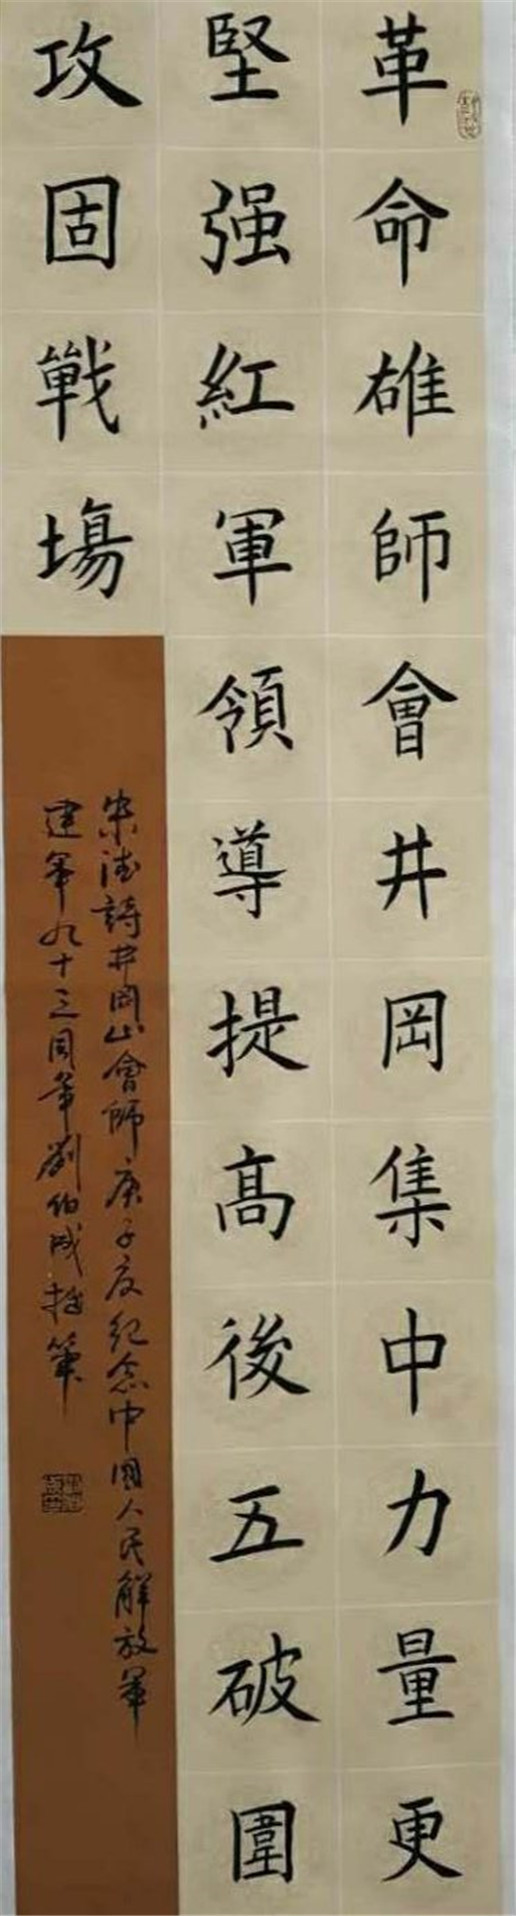 革命雄師會井岡集中力量更
堅强紅軍領導提高後五破圍
攻固戰塲
朱德詩井岡山會師庚子夏紀念中國人民解放軍
建軍九十三周年劉伯成拙筆